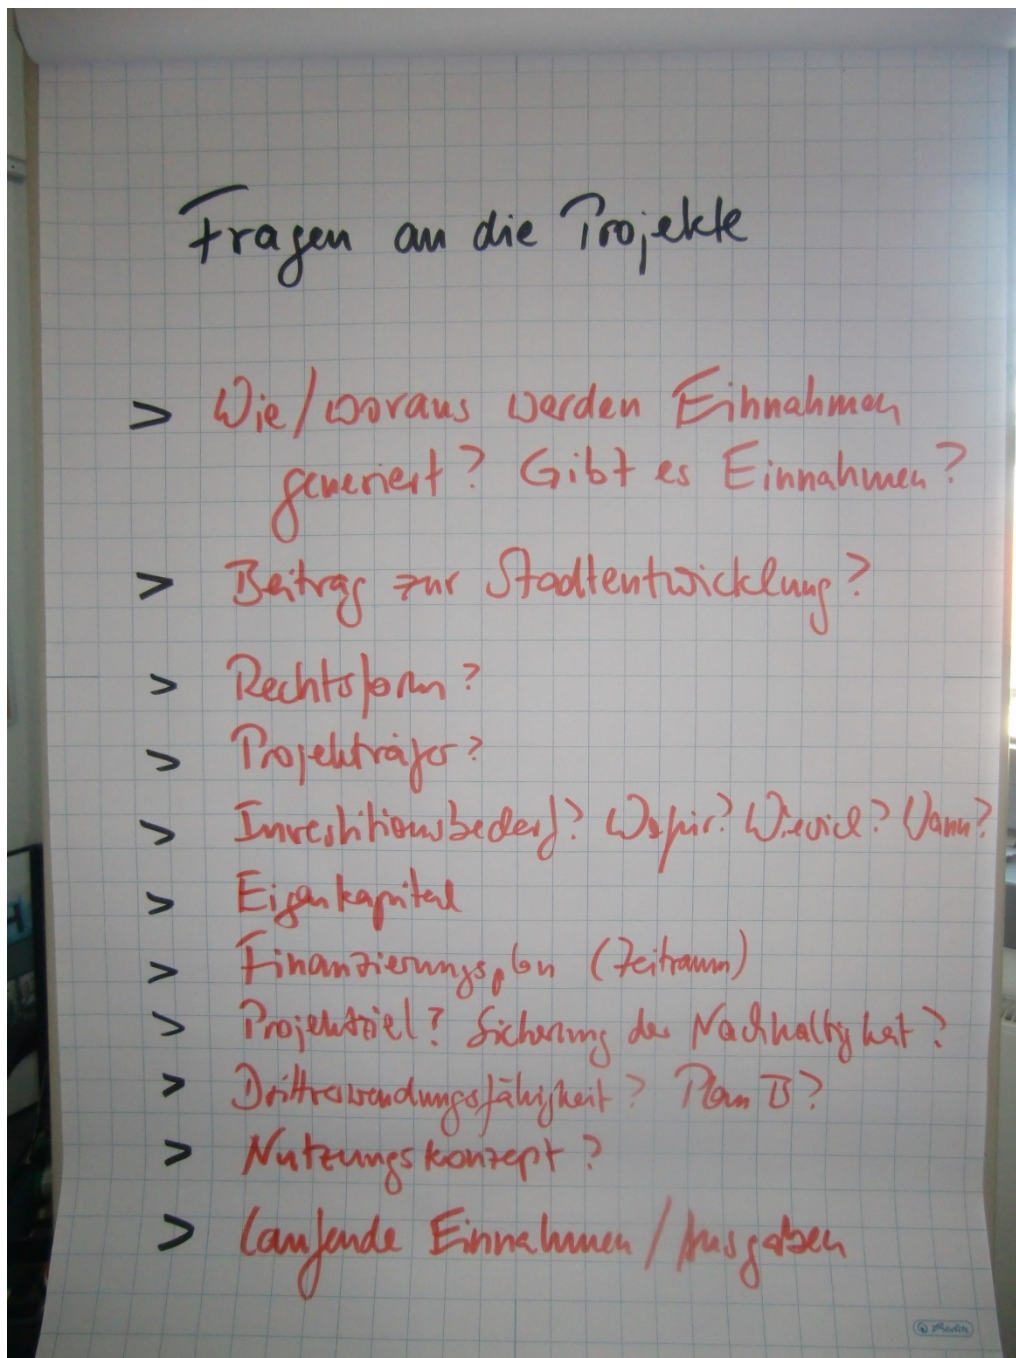 Fragen an die Projekte
> Wie/woraus werden Einnahmen
generiert? Gibt es Einnahmen?
> Beitrag zur Stadtentwicklung?
> Rechtsform?
> Projektträger?
> Investitionsbedarf? Wofür? Wieviel? Wann?
> Eigenkapital
> Finanzierungsplan (Zeitraum)
> Projektziel? Sicherung der Nachhaltigkeit?
> Drittverwendungsfähigkeit? Plan B?
> Nutzungskonzept?
> laufende Einnahmen/Ausgaben